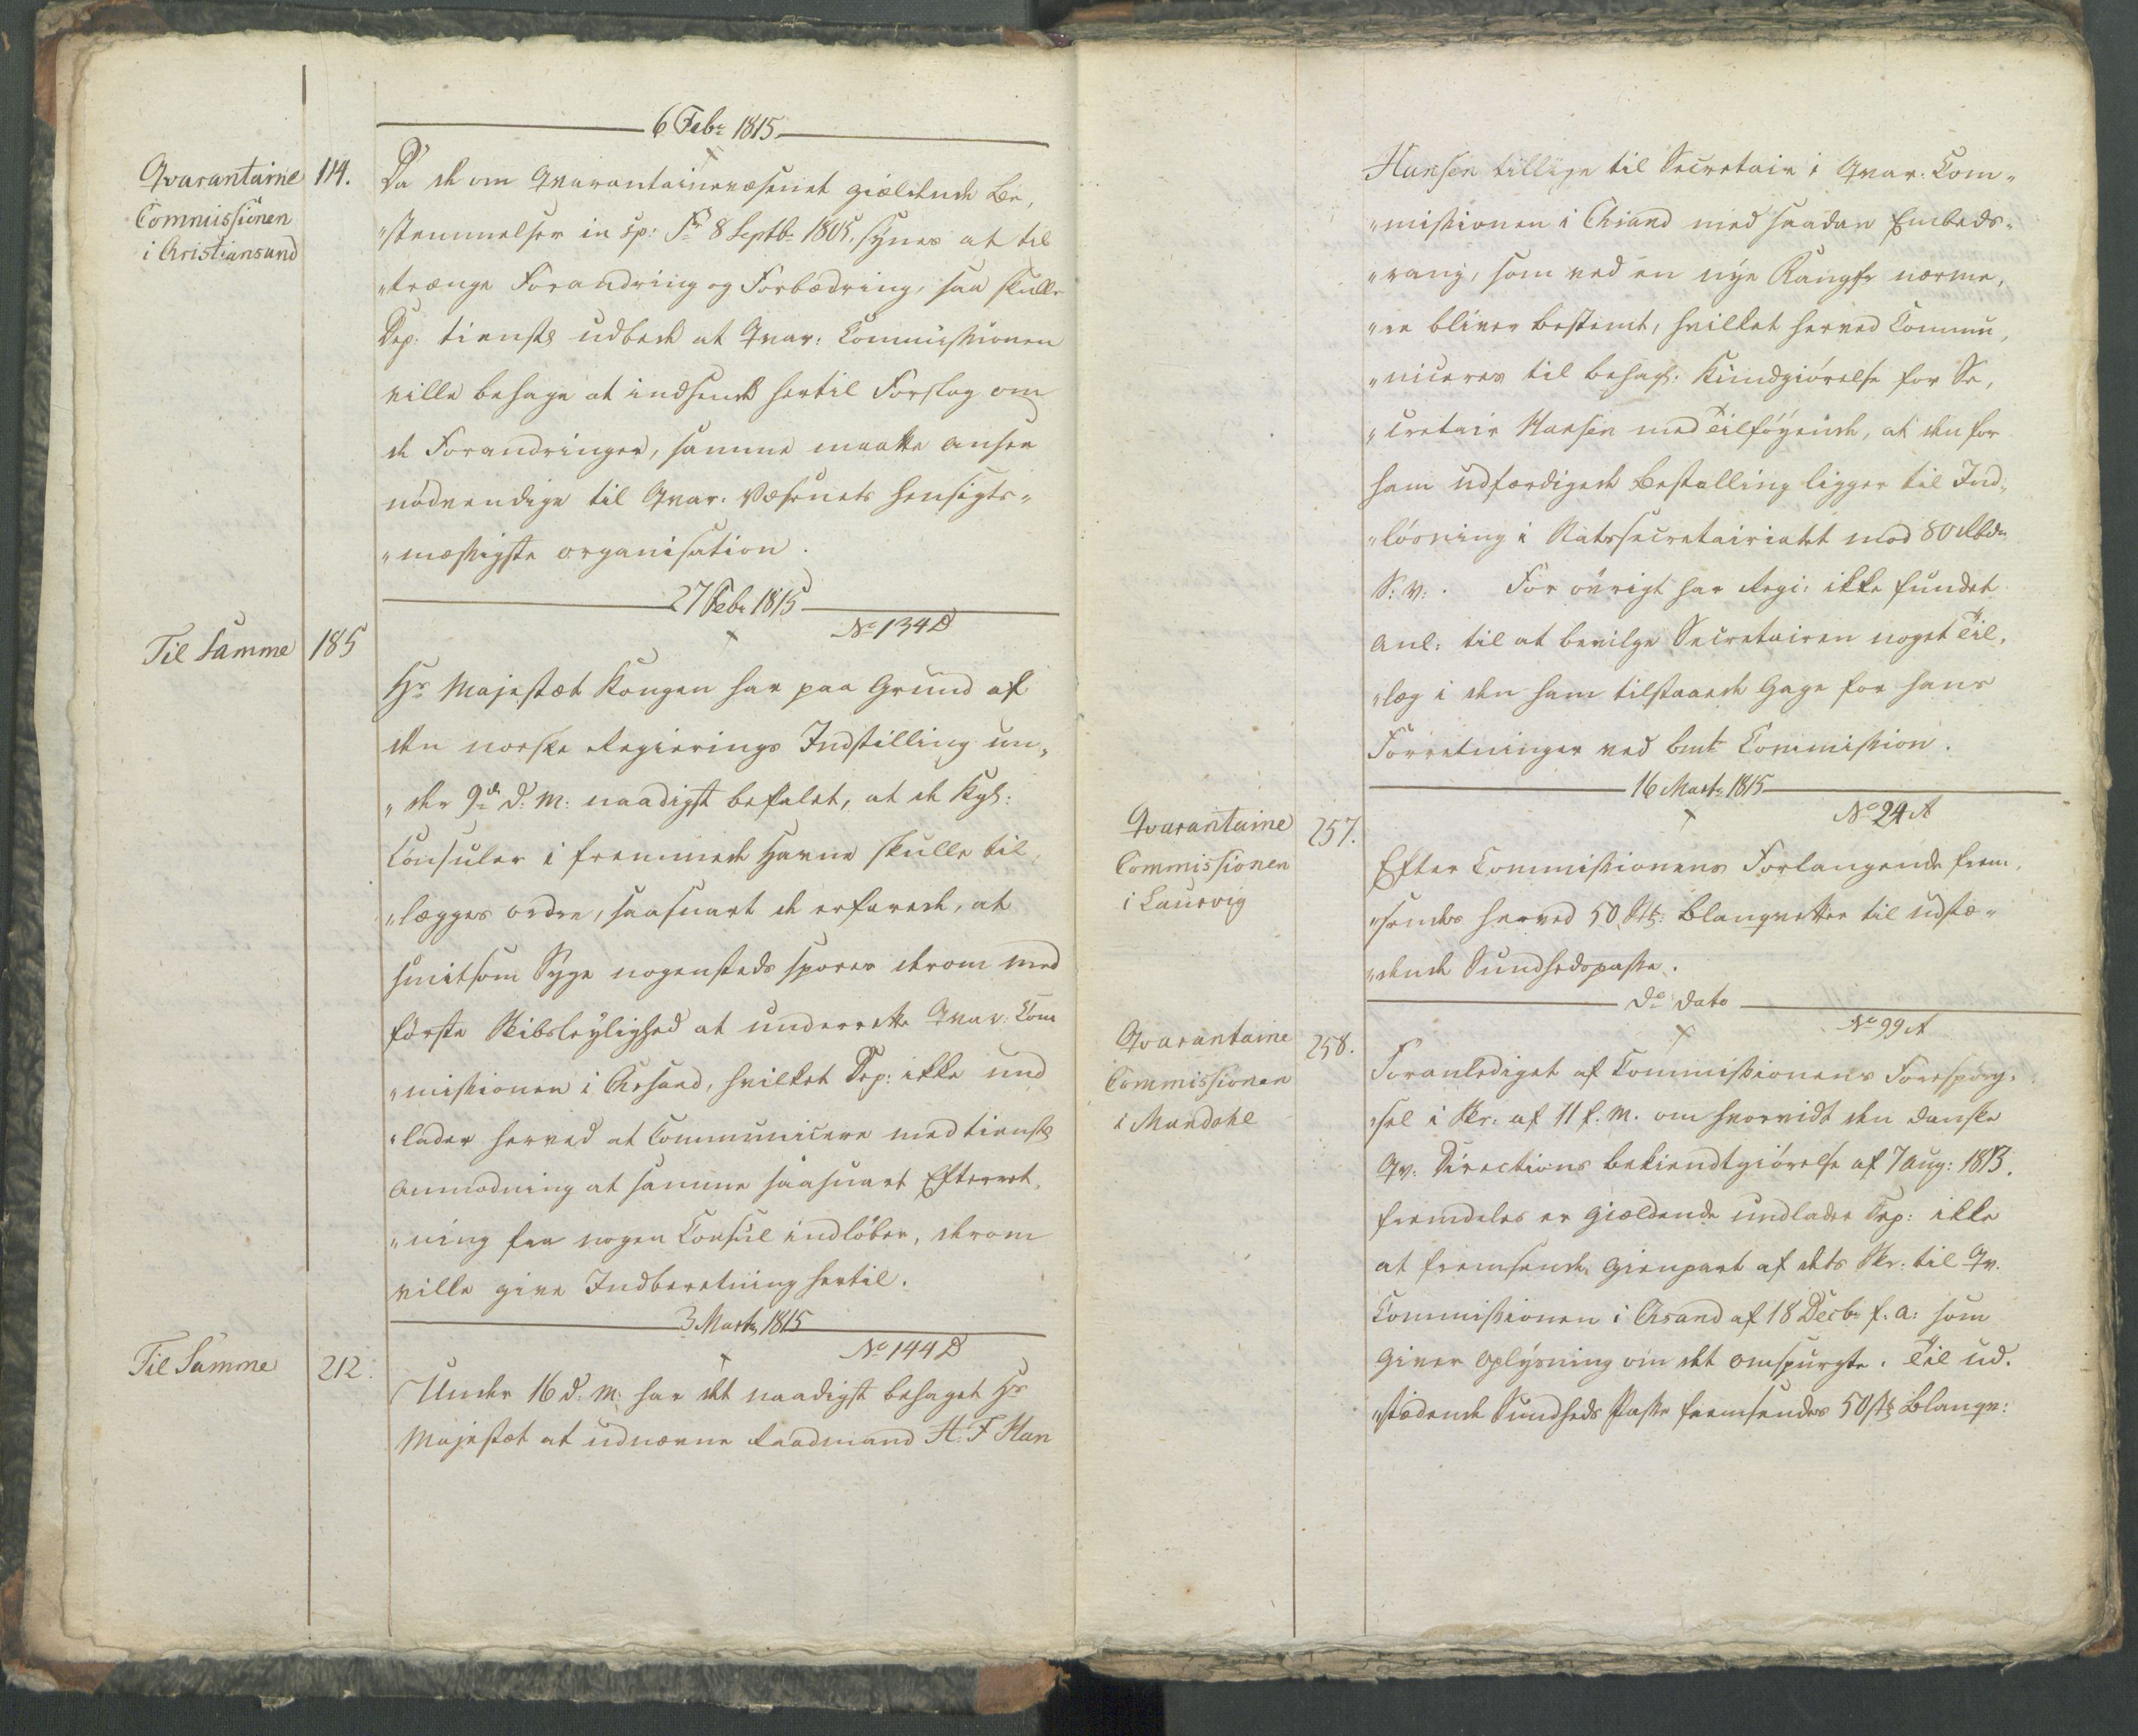 6 Febr 1815
Qvarantaine
Commissionen
i Christiansand
114.
Da de om Qvarantainevæsenet giældende Be„
„stemmelser in sp: Fr 8 Septbr 1805, synes at til
„trænge Forandring og Forbædring, saa skulle
Dep: tienstl udbede at Qvar: Commissionen
ville behage at indsende hertil Forslag om
de Forandringer, samme maatte ansee
nödvendige til Qvar: Væsenets hensigts„
„mæssigste organisation.
27 Febr 1815
No 134 D
Til Samme
185
Hs Majestæt Kongen har paa Grund af
den norske Regierings Indstilling un„
„der 9de d: M: naadigst befalet, at de Kgl:
Consuler i fremmede Havne skulle til„
„lægges ordre, saasnart de erfarede, at
smitsom Syge nogensteds spores derom med
förste Skibsleylighed at underrette Qvar: Com
„missionen i Chrsand, hvilket Dep: ikke und
„lader herved at Communicere med tienstl
Anmodning at samme saasnart Efterret„
„ning fra nogen Consul indlöber, derom
ville give Indberetning hertil.
3 Marts 1815
No 144 D
Til Samme
212.
Under 16 d: M: har det naadigst behaget Hs
Majestæt at udnævne Raadmand H. F Han
Hansen tillige til Secretair i Qvar: Com„
„missionen i Chrsand med saadan Embeds„
„rang, som ved en nye Rangfr nærme„
„re bliver bestemt, hvilket herved Commu„
„niceres til behagl: Kundgiörelse for Se„
„cretair Hansen med Tilföyende, at den for
ham udfærdigede Bestalling ligger til Ind„
„lösning i Statssecretairiatet mod 80 Rbdr
S: V: . For övrigt har Regj: ikke fundet
Anl: til at bevilge Secretairen noget Til„
„læg i den ham tilstaaede Gage for hans
Forretninger ved bmte Commission.
16 Marts 1815
No 24 A
Qvarantaine
Commissionen
i Laurvig
257.
Efter Commissionens Forlangende frem„
„sendes herved 50 Stk: Blanqvetter til udstæ„
„dende Sundhedspasse.
Do Dato
No 99 A
Qvarantaine
Commissionen
i Mandahl
258.
Foranlediget af Commissionens Forespørg„
„sel i Skr: af 11 f. M. om hvorvidt den danske
Qv: Directions bekiendtgiörelse af 7 Aug: 1813.
fremdeles er giældende undlader Dep: ikke
at fremsende Gienpart af dets Skr: til Qv.
Commissionen i Chrsand af 18 Decbr f. A: som
Giver Oplysning om det omspurgte. Til ud„
„stædende Sundheds Passe fremsendes 50 stk Blanqv: